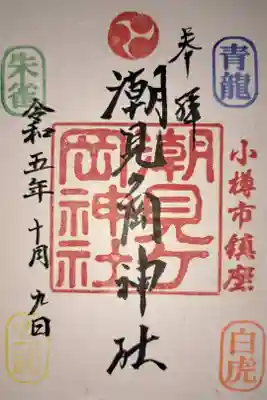 奉拝
青龍
小樽市鎮座
白虎
潮見ヶ岡神社
潮見ヶ岡神社
朱雀
令和五年十月九日